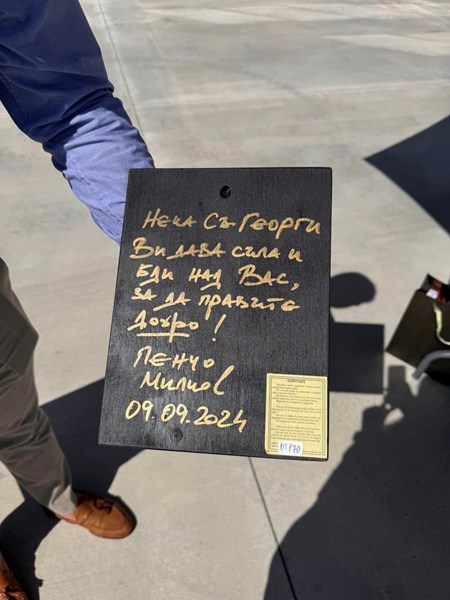 НЕКА СВ ГЕОРГИ
ВИ ДАВА СИЛА И
БДИ НАД ВАС,
ЗА ДА ПРАВИТЕ
ДОБРО!
ПЕНЧО
МИЛКОВ
09.09.2024
№170